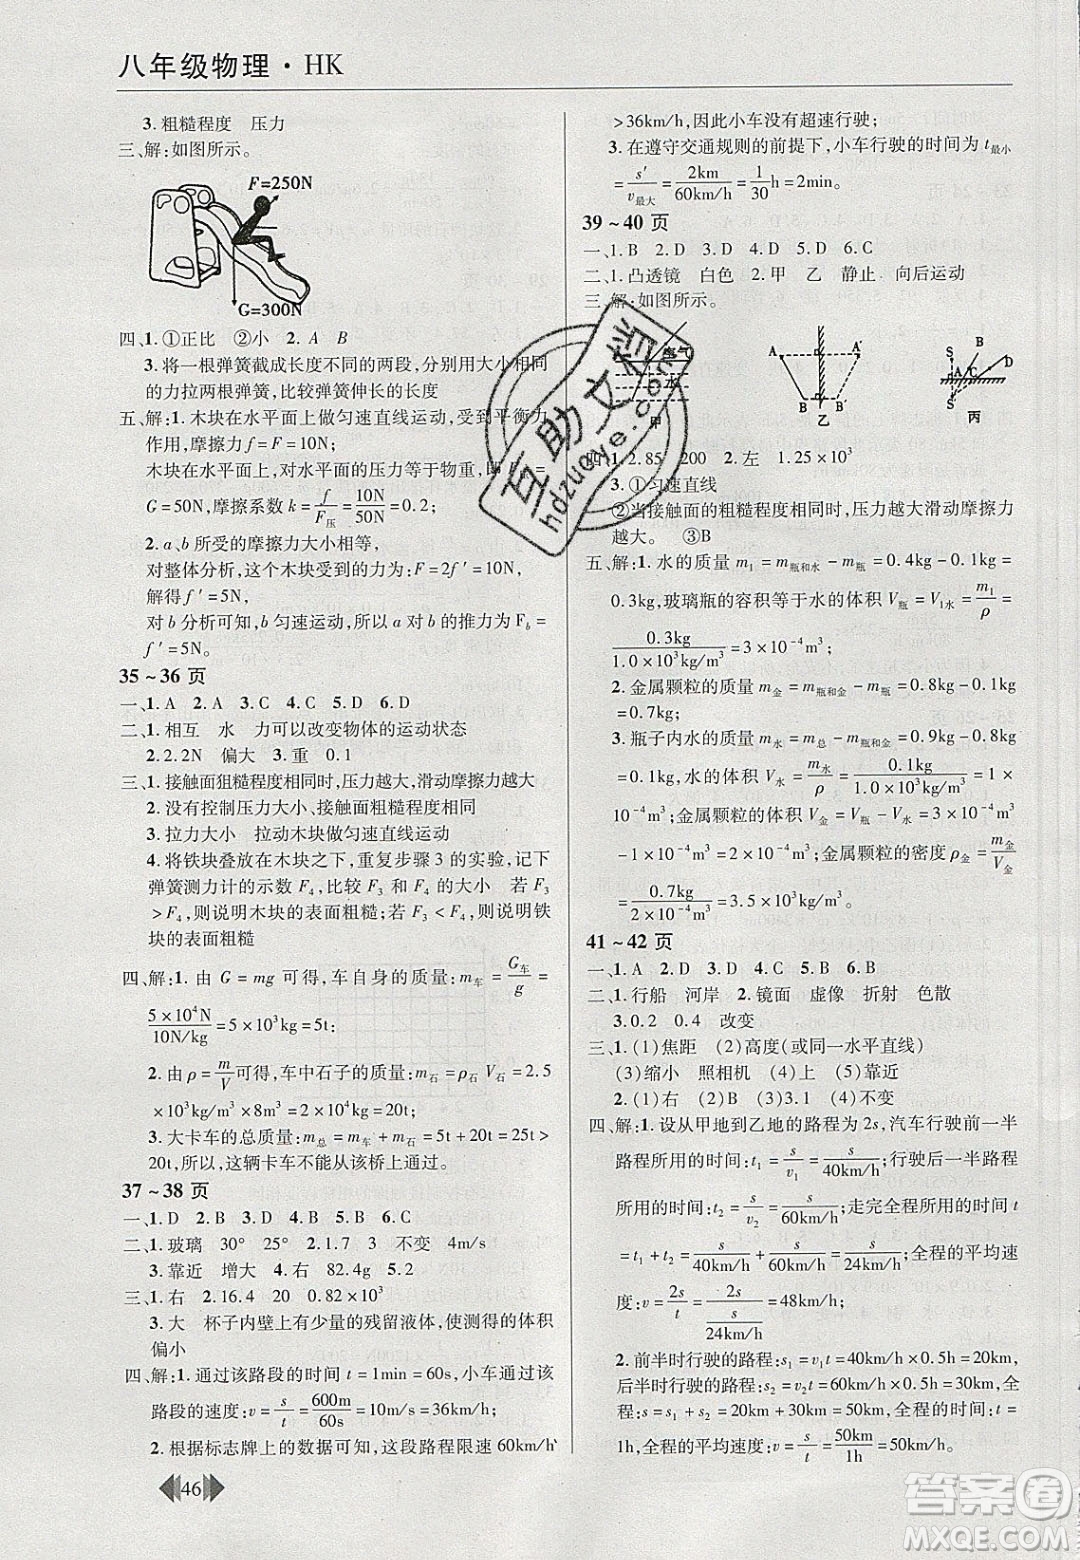 八年级物理·HK
3.粗糙程度 压力
三、解:如图所示。
F=250N
G=300N
四、1.①正比 ②小 2.A B
3.将一根弹簧截成长度不同的两段,分别用大小相同
的力拉两根弹簧,比较弹簧伸长的长度
五、解:1.木块在水平面上做匀速直线运动,受到平衡力
作用,摩擦力 f=F=10N;
木块在水平面上,对水平面的压力等于物重,即 F压=
G=50N,摩擦系数 k=f/F压=10N/50N=0.2;
2.a、b 所受的摩擦力大小相等,
对整体分析,这个木块受到的力为:F=2f′=10N,
解得 f′=5N;
对 b 分析可知,b 匀速运动,所以 a 对 b 的推力为 Fb=
f′=5N。
35~36 页
一、1.A 2.A 3.C 4.C 5.D 6.D
二、1.相互 水 力可以改变物体的运动状态
2.2.2N 偏大 3.重 0.1
三、1.接触面狙糙程度相同时,压力越大,滑动摩擦力越大
2.没有控制压力大小、接触面粗糙程度相同
3.拉力大小 拉动木块做匀速直线运动
4.将铁块叠放在木块之下,重复步骤 3 的实验,记下
弹簧测力计的示数 F4,比较 F3 和 F4 的大小 若 F3
>F4,则说明木块的表面粗糙;若 F3<F4,则说明铁
块的表面粗糙
四、解:1.由 G=mg 可得,车自身的质量:m车=G车/g=
5×10⁴N/10N/kg=5×10³kg=5t;
2.由 ρ=m/V可得,车中石子的质量:m石=ρ石V石=2.5
×10³kg/m³×8m³=2×10⁴kg=20t;
3.大卡车的总质量:m总=m车+m石=5t+20t=25t>
20t,所以,这辆卡车不能从该桥上通过。
37~38 页
一、1.D 2.B 3.D 4.B 5.B 6.C
二、1.玻璃 30° 25° 2.1.7 3 不变 4m/s
3.靠近 增大 4.右 82.4g 5.2
三、1.右 2.16.4 20 0.82×10³
3.大 杯子内壁上有少量的残留液体,使测得的体积
偏小
四、解:1.通过该路段的时间 t=1min=60s,小车通过该
路段的速度:v=s/t=600m/60s=10m/s=36km/h;
2.根据标志牌上的数据可知,这段路程限速 60km/h
46
>36km/h,因此小车没有超速行驶;
3.在遵守交通规则的前提下,小车行驶的时间为 t最小
=s′/v最大=2km/60km/h=1/30h=2min。
39~40 页
一、1.B 2.D 3.D 4.A 5.D 6.C
二、1.凸透镜 白色 2.甲 乙 静止 向后运动
三、解:如图所示。
空气
水
甲
A A′
B B′
乙
S A C B D S′
丙
四、1.2.85 200 2.左 1.25×10³
3.①匀速直线
②当接触面的粗糙程度相同时,压力越大滑动摩擦力
越大。 ③B
五、解:1.水的质量 m1=m瓶和水-m瓶=0.4kg-0.1kg=
0.3kg,玻璃瓶的容积等于水的体积 V瓶=V1水=m1/ρ=
0.3kg/1.0×10³kg/m³=3×10⁻⁴m³;
2.金属颗粒的质量 m金=m瓶和金-m瓶=0.8kg-0.1kg
=0.7kg;
3.瓶子内水的质量 m水=m总-m瓶和金=0.9kg-0.8kg
=0.1kg,水的体积 V水=m水/ρ=0.1kg/1.0×10³kg/m³=1×
10⁻⁴m³;金属颗粒的体积 V金=V瓶-V水=3×10⁻⁴m³
-1×10⁻⁴m³=2×10⁻⁴m³;金属颗粒的密度 ρ金=m金/V金
=0.7kg/2×10⁻⁴m³=3.5×10³kg/m³。
41~42 页
一、1.A 2.D 3.D 4.C 5.B 6.B
二、1.行船 河岸 2.镜面 虚像 折射 色散
3.0.2 0.4 改变
三、1.(1)焦距 (2)高度(或同一水平直线)
(3)缩小 照相机 (5)靠近
2.(1)右 (2)B (3)3.1 (4)不变
四、解:1.设从甲地到乙地的路程为 2s,汽车行驶前一半
路程所用的时间:t1=s/v1=s/40km/h;行驶后一半路程
所用的时间:t2=s/v2=s/60km/h;走完全程所用的时间 t
=t1+t2=s/40km/h+s/60km/h=s/24km/h;全程的平均速
度:v=2s/t=2s/(s/24km/h)=48km/h;
2.前半时行驶的路程:s1=v1t=40km/h×0.5h=20km,
后半时行驶的路程:s2=v2t=60km/h×0.5h=30km,全
程:s=s1+s2=20km+30km=50km,全程的时间:t=
1h,全程的平均速度:v=s/t=50km/1h=50km/h。
互助文档
hdzuoye.com
答案圈
MXQE.COM